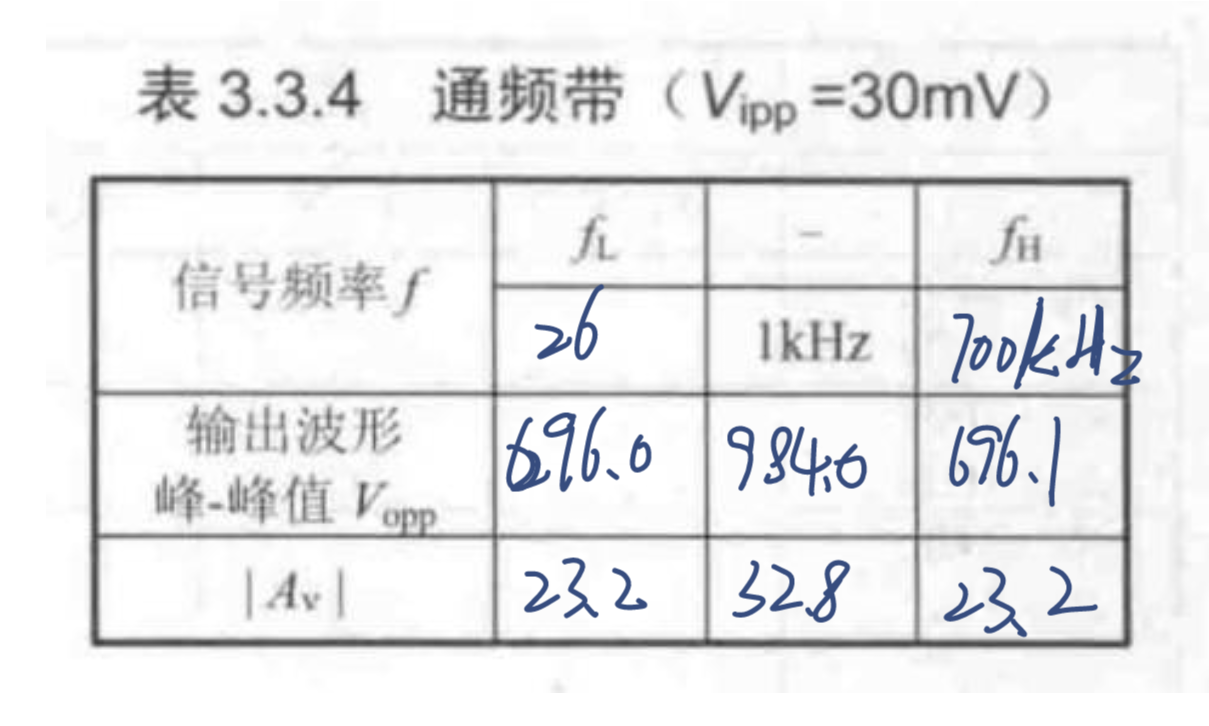 表 3.3.4 通频带（Vipp =30mV）
信号频率 f
fL
–
fH
26
1kHz
700kHz
输出波形
峰-峰值 Vopp
696.0
984.0
696.1
|Av|
23.2
32.8
23.2